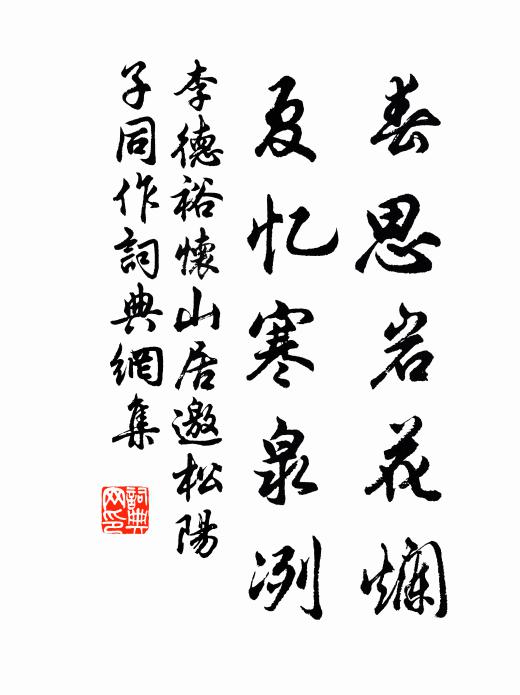 春思岩花爛
夏忆寒泉冽
李德裕懷山居邀松陽
子同作詞典網集
詞典网印